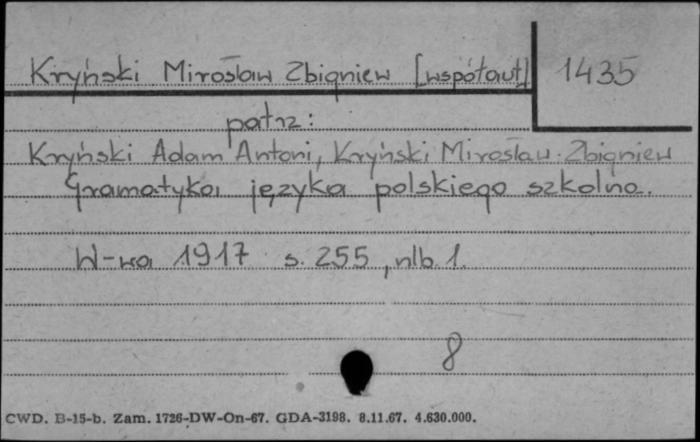 Kryński Mirosław Zbigniew [współaut] 1435
patrz:
Kryński Adam Antoni, Kryński Mirosław Zbigniew
Gramatyka języka polskiego szkolna.
W-wa 1917 s. 255, nlb. 1.
8
CWD. B-15-b. Zam. 1726-DW-On-67. GDA-3198. 8.11.67. 4.630.000.